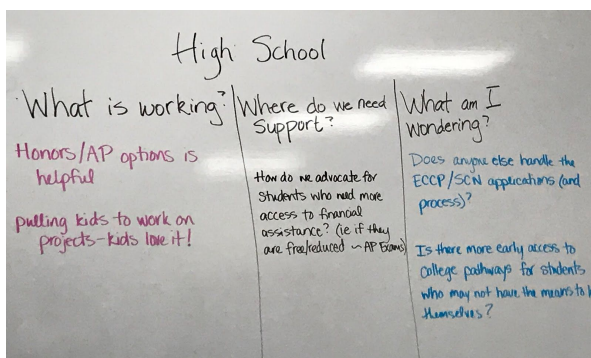 High School
What is working?
Honors/AP options is
helpful
pulling kids to work on
projects-kids love it!
Where do we need
support?
How do we advocate for
students who need more
access to financial
assistance? (ie if they
are free/reduced ~ AP Exams)
What am I
wondering?
Does anyone else handle the
ECCP/SCN applications (and
process)?
Is there more early access to
college pathways for students
who may not have the means to
themselves?